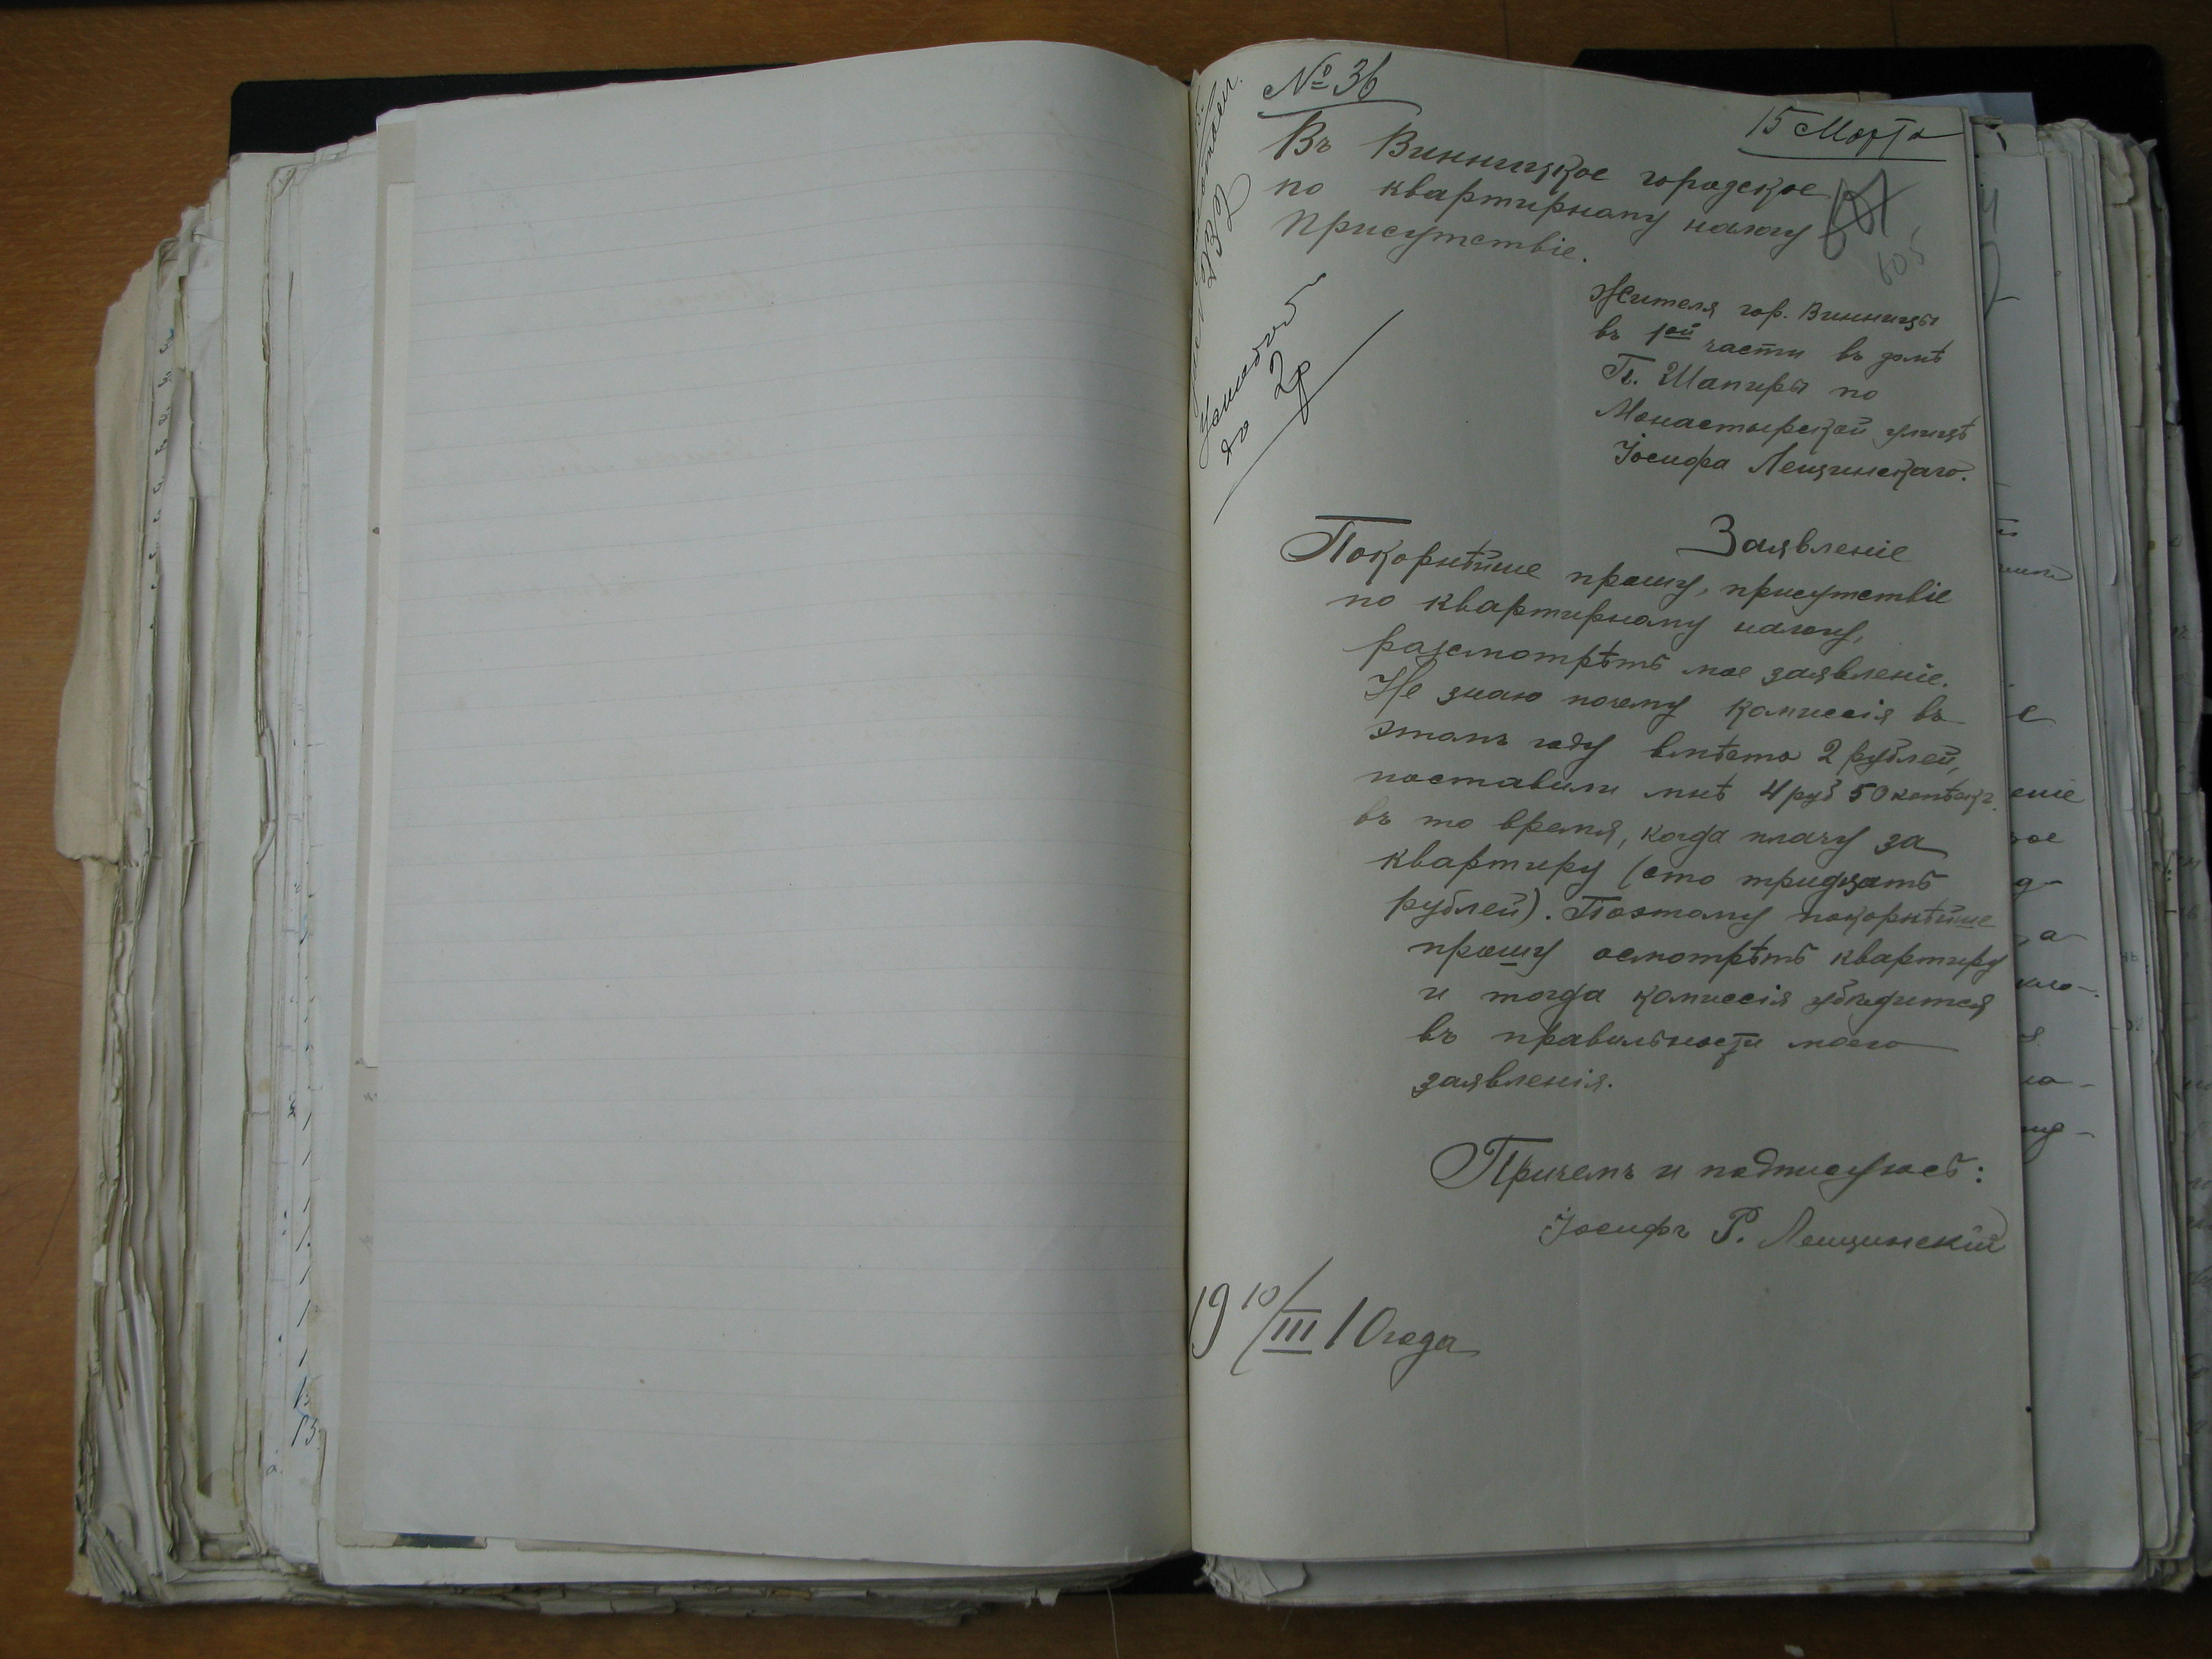 № 36
15 Марта
Въ Винницкое городское
по квартирному налогу
Присутствіе.
605
Жителя гор. Винницы
въ 1ой части въ домѣ
Г. Шапиры по
Монастырской улицѣ
Іосифа Лещинскаго.
до 2р
Заявленіе
Покорнѣйше прошу, присутствіе
по квартирному налогу,
разсмотрѣть мое заявленіе.
Не знаю почему комиссія въ
этомъ году вмѣсто 2 рублей,
поставили мнѣ 4 руб 50 копѣекъ.
въ то время, когда плачу за
квартиру (сто тридцать
рублей). Поэтому покорнѣйше
прошу осмотрѣть квартиру
и тогда комиссія убѣдится
въ правильности моего
заявленія.
Причемъ и подписуюсь:
Іосифъ Р. Лещинскій
19 10/III 10 года